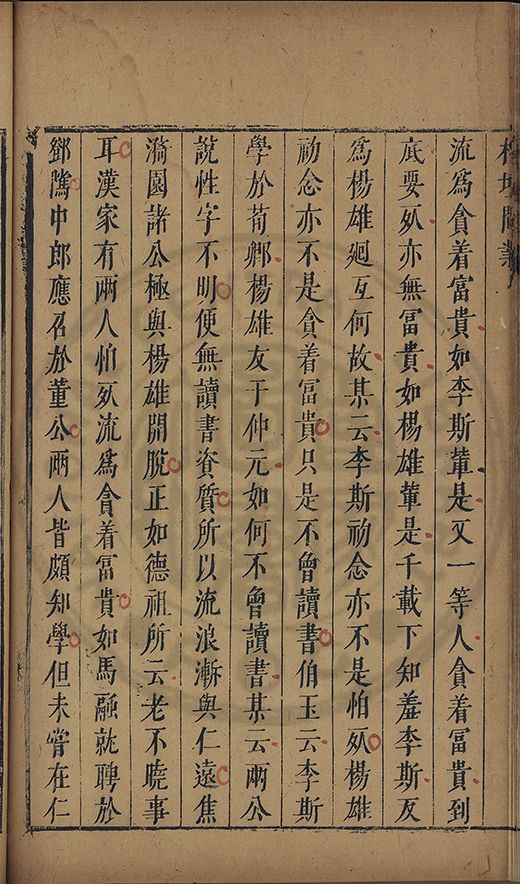 榕壇問業
流爲貪着富貴如李斯輩是又一等人貪着富貴到
底要死亦無富貴如楊雄輩是千載下知羞李斯反
爲楊雄廻互何故某云李斯初念亦不是怕死楊雄
初念亦不是貪着富貴只是不曾讀書伯玉云李斯
學於荀卿楊雄友于仲元如何不曾讀書某云兩公
說性字不明便無讀書資質所以流浪漸與仁遠焦
漪園諸公極與楊雄開脫正如德祖所云老不曉事
耳漢家有兩人怕死流爲貪着富貴如馬融就聘於
鄧隲中郎應召於董公兩人皆頗知學但未嘗在仁